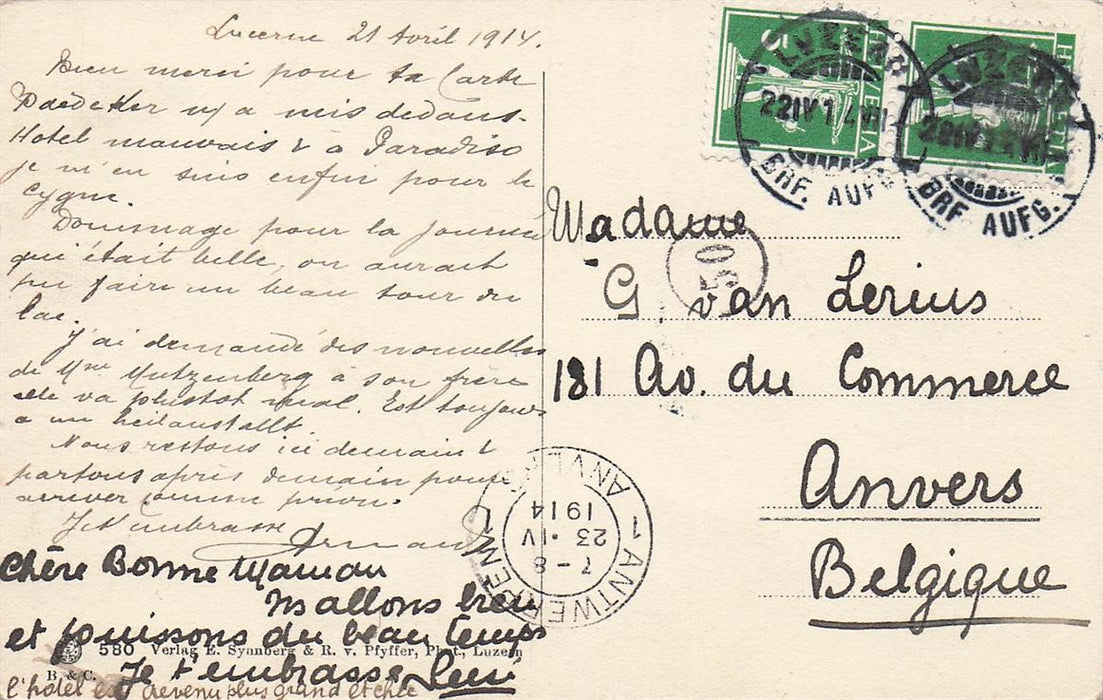 Lucerne 21 Avril 1914.
Bien merci pour ta Carte
Baedeker m'a mis dedans.
Hotel mauvais & à Paradiso
je m'en suis enfin pour le
Cygne.
Dommage pour la journée
qui était belle, on aurait
pu faire un beau tour du
lac.
J'ai demandé des nouvelles
de Mme Mutzenberg à son frère
elle va plustot mal. Est toujours
a un heilanstallt.
Nous restons ici demain &
partons après demain pour
arriver comme prévu.
Je t'embrasse
Armand
Chère Bonne Maman
Ns allons bien
et jouissons du beau temps
Je t'embrasse
l'hôtel est devenu plus grand et chic
580 Verlag E. Synnberg & R. v. Pfyffer, Phot., Luzern
B. & C.
HELVETIA
HELVETIA
LUZERN
22 IV 14 VII
BRF. AUFG.
LUZERN
22 IV 14 VII
BRF. AUFG.
Madame
50
G. van Lerius
181 Av. du Commerce
Anvers
Belgique
1 ANTWERPEN 1 ANVERS
7-8
23 · IV
1914